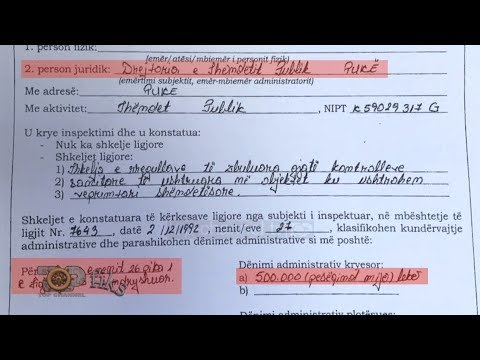 1. person fizik:
(emër/atësi/mbiemër i personit fizik)
2. person juridik: Drejtoria e Shëndetit Publik PUKË
(emërtimi subjektit, emër-mbiemër administratorit)
Me adresë: PUKË
Me aktivitet: Shëndet Publik, NIPT K59029317G
U krye inspektimi dhe u konstatua:
- Nuk ka shkelje ligjore
- Shkeljet ligjore:
1) Shkelja e rregullave të zbuluara gjatë kontrolleve
2) sanitare të ushtruara në objektet ku ushtrohem
3) veprimtari shëndetësore.
Shkeljet e konstatuara të kërkesave ligjore nga subjekti i inspektuar, në mbështetje të
ligjit Nr. 7643, datë 2/12/1992, nenit/eve 27, klasifikohen kundërvajtje
administrative dhe parashikohen dënimet administrative si më poshtë:
Për nenit 26 pika 1
Dënimi administrativ kryesor:
a) 500.000 (pesëqind mijë) lekë
Dënimi administrativ plotësues: